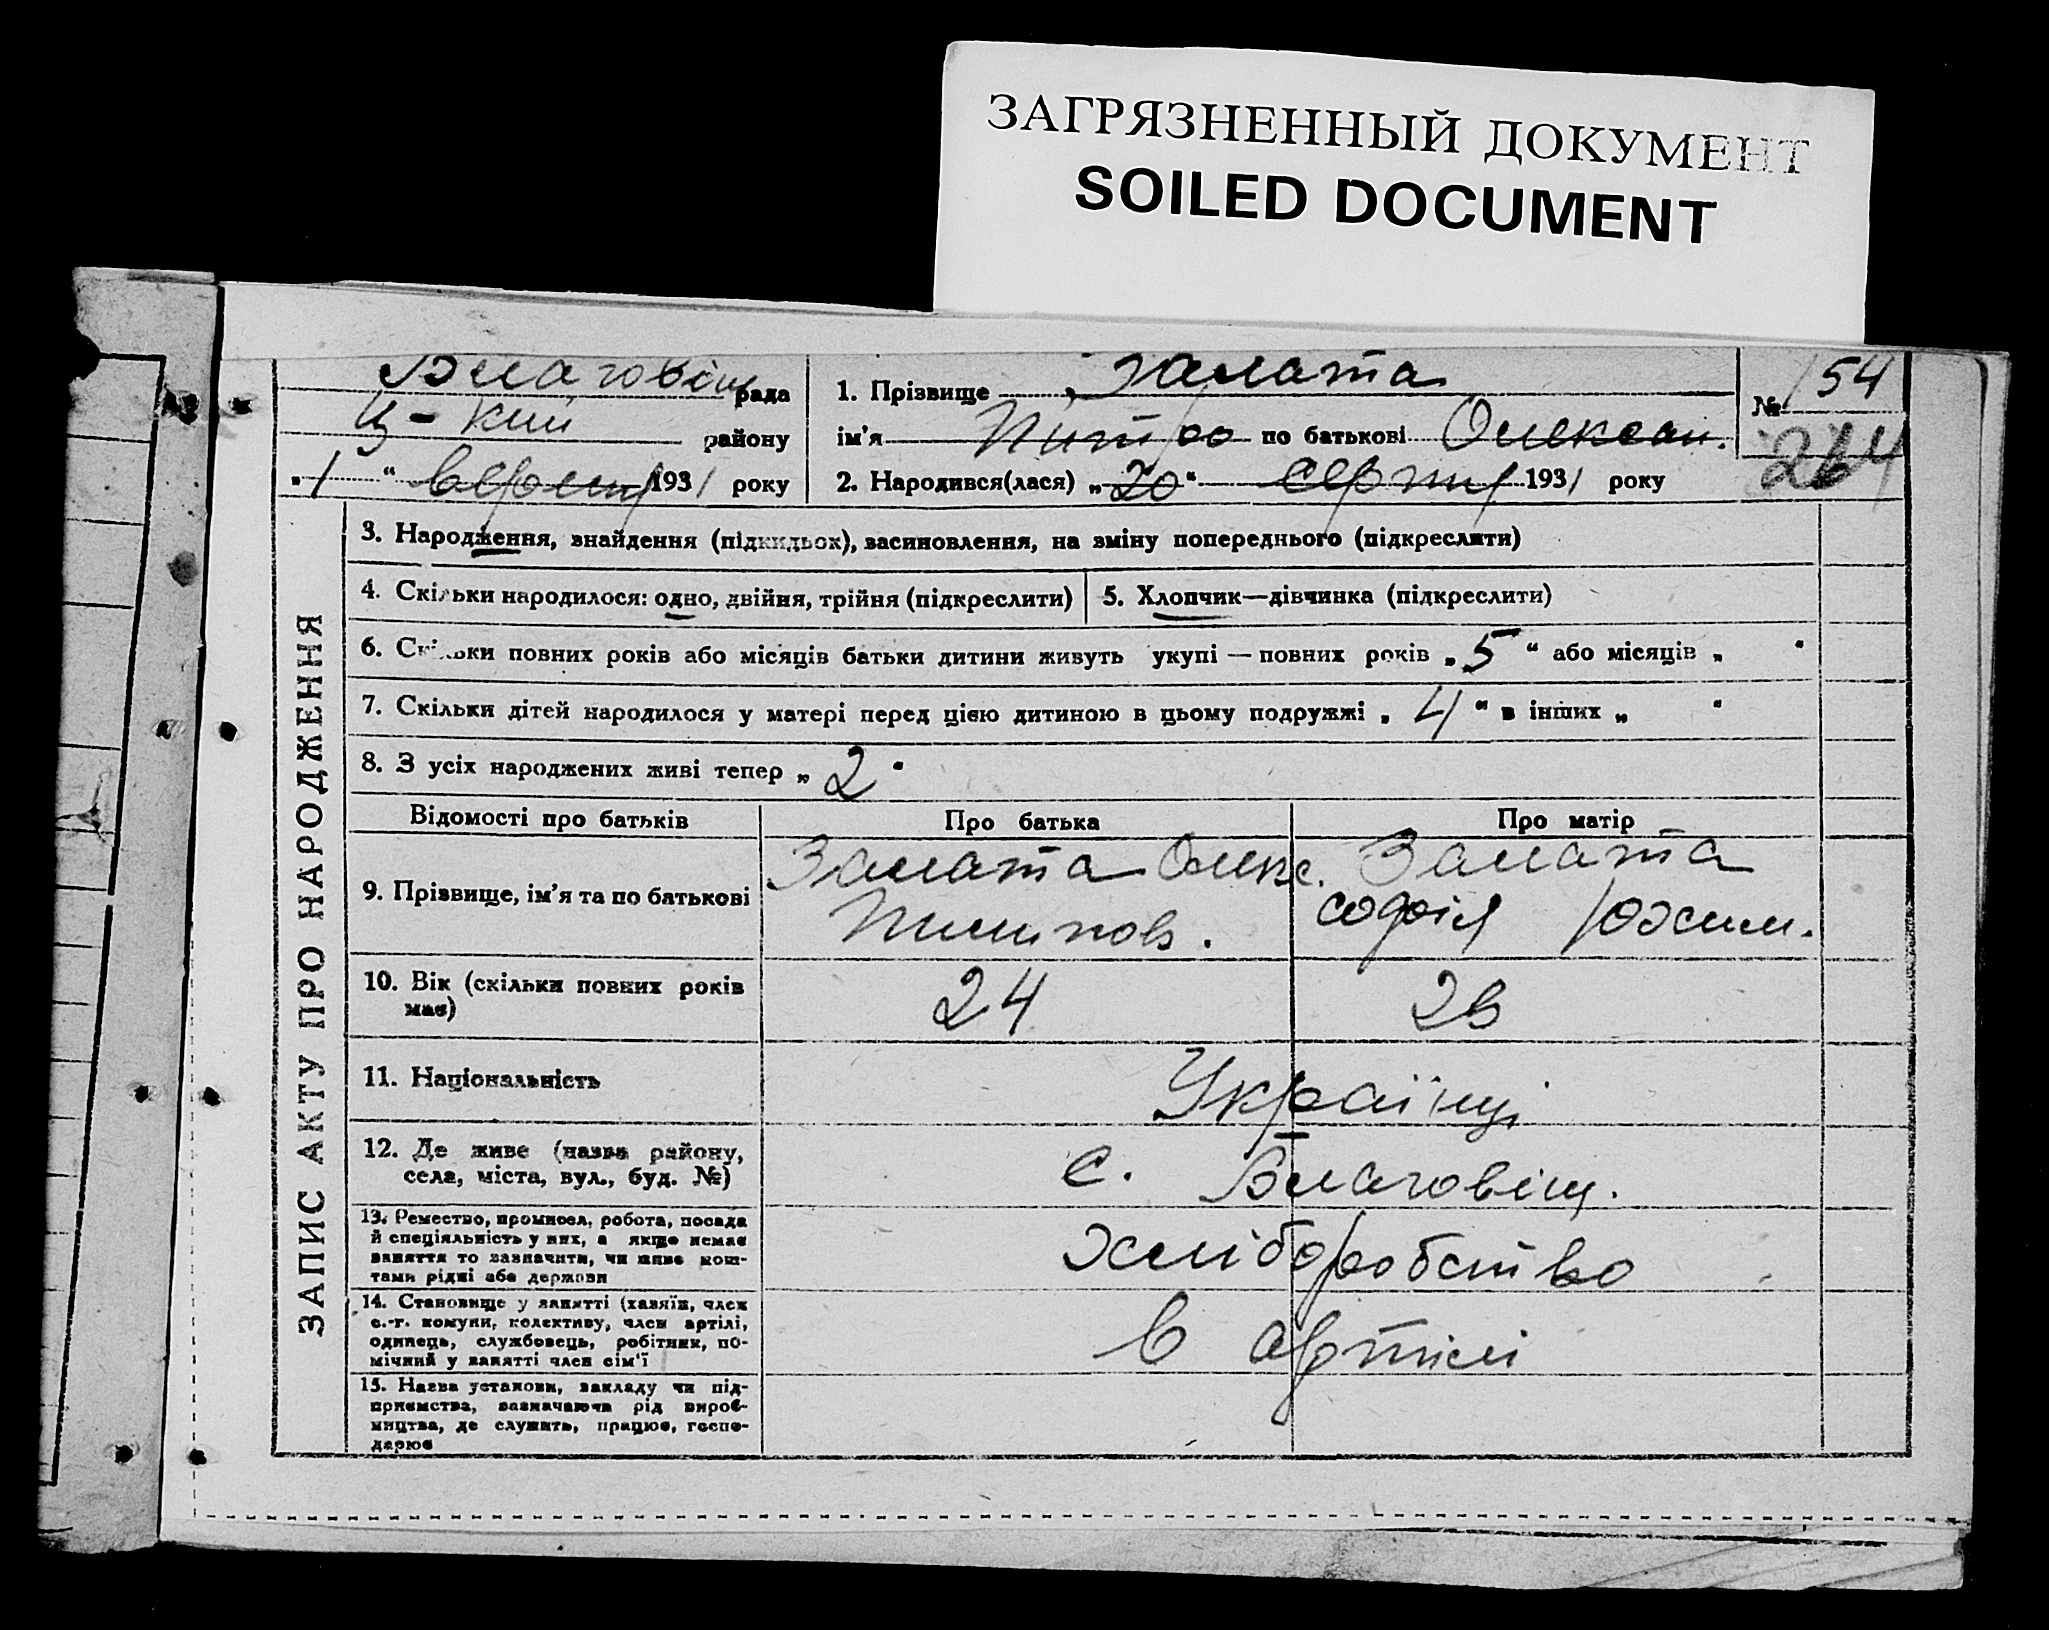 ЗАГРЯЗНЕННЫЙ ДОКУМЕНТ
SOILED DOCUMENT
Благовіщ рада
Ц-кий району
„1“ версня 1931 року
1. Прізвище Залата
ім’я Питро по батькові Олексан.
2. Народився(лася) „20“ серпня 1931 року
№ 154
264
ЗАПИС АКТУ ПРО НАРОДЖЕННЯ
3. Народження, знайдення (підкидьох), засиновлення, на зміну попереднього (підкреслити)
4. Скільки народилося: одно, двійня, трійня (підкреслити)
5. Хлопчик—дівчинка (підкреслити)
6. Скільки повних років або місяців батьки дитини живуть укупі — повних років „5“ або місяців „ “
7. Скільки дітей народилося у матері перед цією дитиною в цьому подружжі „4“ в інших „ “
8. З усіх народжених живі тепер „2“
Відомості про батьків
Про батька
Про матір
9. Прізвище, ім’я та по батькові
Залата Олекс.
Пилипов.
Залата
софія Юхим.
10. Вік (скільки повних років
має)
24
26
11. Національність
Українці
12. Де живе (назва району,
села, міста, вул., буд. №)
с. Благовіщ.
13. Ремество, промисел, робота, посада
й спеціяльність у них, а якщо немає
заняття то зазначити, чи живе кош-
тами рідні або держави
хліборобство
14. Становище у занятті (хазяїн, член
с.-г. комуни, колективу, член артілі,
одинець, службовець, робітник, по-
мічний у занятті член сім’ї
в артілі
15. Назва установи, закладу чи під-
приємства, зазначаючи рід вироб-
ництва, де служить, працює, госпо-
дарює